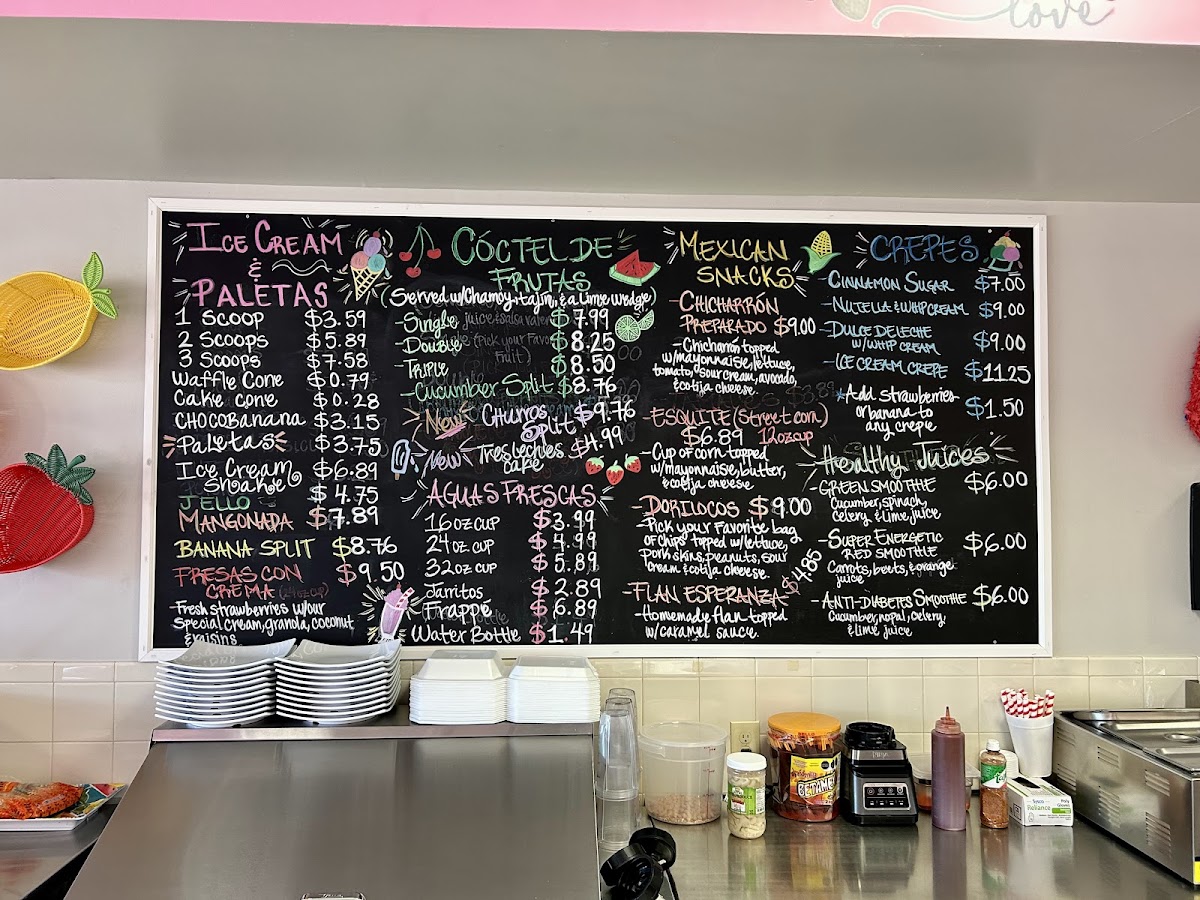 love
ICE CREAM
&
PALETAS
1 SCOOP $3.59
2 SCOOPS $5.89
3 SCOOPS $7.58
Waffle Cone $0.79
Cake cone $0.28
CHOCOBanana $3.15
Paletas $3.75
Ice Cream
Shake $6.89
JELLO $4.75
MANGONADA $7.89
BANANA SPLIT $8.76
FRESAS CON
CREMA (24oz cup) $9.50
-Fresh strawberries w/our
Special cream, granola, coconut
& raisins
CÓCTEL DE
FRUTAS
(Served w/Chamoy, tajin, & a Lime wedge)
-Single $7.99
-Double $8.25
-Triple $8.50
-Cucumber Split $8.76
New Churros
Split $9.76
New Tres leches
cake $4.99
AGUAS FRESCAS
16 oz cup $3.99
24 oz cup $4.99
32 oz cup $5.89
Jarritos $2.89
Frappé $6.89
Water Bottle $1.49
MEXICAN
SNACKS
-CHICHARRÓN
PREPARADO $9.00
-Chicharrón topped
w/mayonnaise, lettuce,
tomato, sour cream, avocado,
& cotija cheese.
-ESQUITE (Street corn)
$6.89 12oz cup
-Cup of corn topped
w/mayonnaise, butter,
& cotija cheese
-DORILOCOS $9.00
-Pick your Favorite bag
of chips topped w/lettuce,
pork skins, peanuts, sour
cream & cotija cheese.
-FLAN ESPERANZA $4.85
-Homemade flan topped
w/caramel sauce.
CREPES
-CINNAMON SUGAR $7.00
-NUTELLA & WHIP CREAM $9.00
-DULCE DE LECHE
W/ WHIP CREAM $9.00
-ICE CREAM CREPE $11.25
*Add strawberries
or banana to
any crepe $1.50
Healthy Juices
-GREEN SMOOTHIE $6.00
Cucumber, spinach,
Celery & lime juice
-SUPER ENERGETIC
RED SMOOTHIE $6.00
Carrots, beets, & orange
juice
-ANTI-DIABETES SMOOTHIE $6.00
Cucumber, nopal, celery,
& lime juice
BETAMEX
Sysco
Reliance